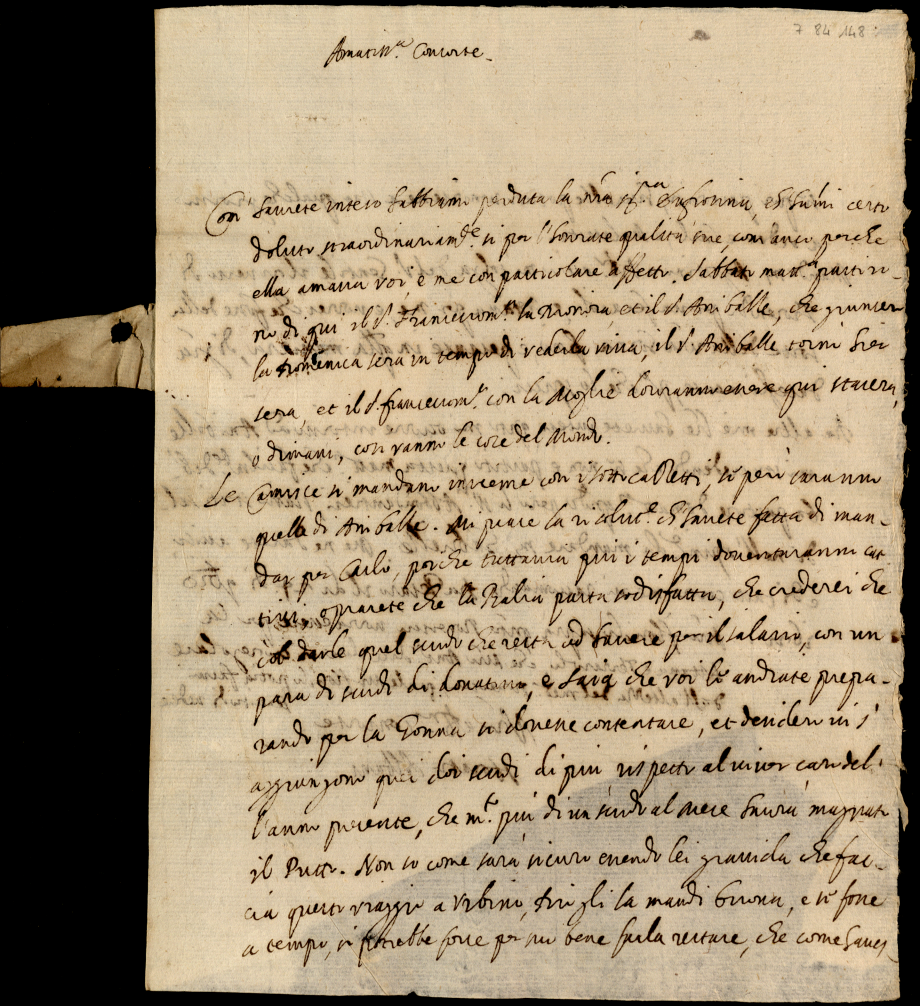 7 84 148
Amatiss.ª Consorte.
Com' havrete inteso habbiamo perduta la nrã Sig.ra Eufrosina, ch'hà mi certo
doluto straordinariam.te si per l'honorate qualità sue, com'anco perche
ella amava voi, e me con particolare affetto. Sabbato matt.ª partiro
no di qui il S. Francesco m.ª la Nonora, et il S. Aniballe, che giunser
la Domenica sera in tempo di vederla viva, il S. Aniballe tornò hier
sera, et il S. francesco m.ª con la Moglie dovranno essere qui stasera,
o dimani, così vanno le cose del Mondo.
Le Camisce si mandano insieme con i sotto calzetti, se però saranno
quelle di Aniballe. Mi piace la risolut.e ch'havete fatta di man-
dar per Carlo, perche tuttavia più i tempi doventaranno cat
tivi, e procurate che la Balia parta sodisfatta, che crederei che
col darle quel scudo che resta ad havere per il salario, con un
para di scudi di donativo, e saia che voi le andiate prepa-
rando per la Gonna si dovesse contentare, et desidero vi s'
aggiungono quei doi scudi di più rispetto al viver caro del-
l'anno presente, che m.e più di un scudo al mese havrà mazzato
il Putto. Non so come sarà sicuro essendo lei gravida che fac-
cia questo viaggio a Urbino, Dio gli la mandi buona, e se fosse
a tempo, si potrebbe forse per suo bene farla restare, che come haves